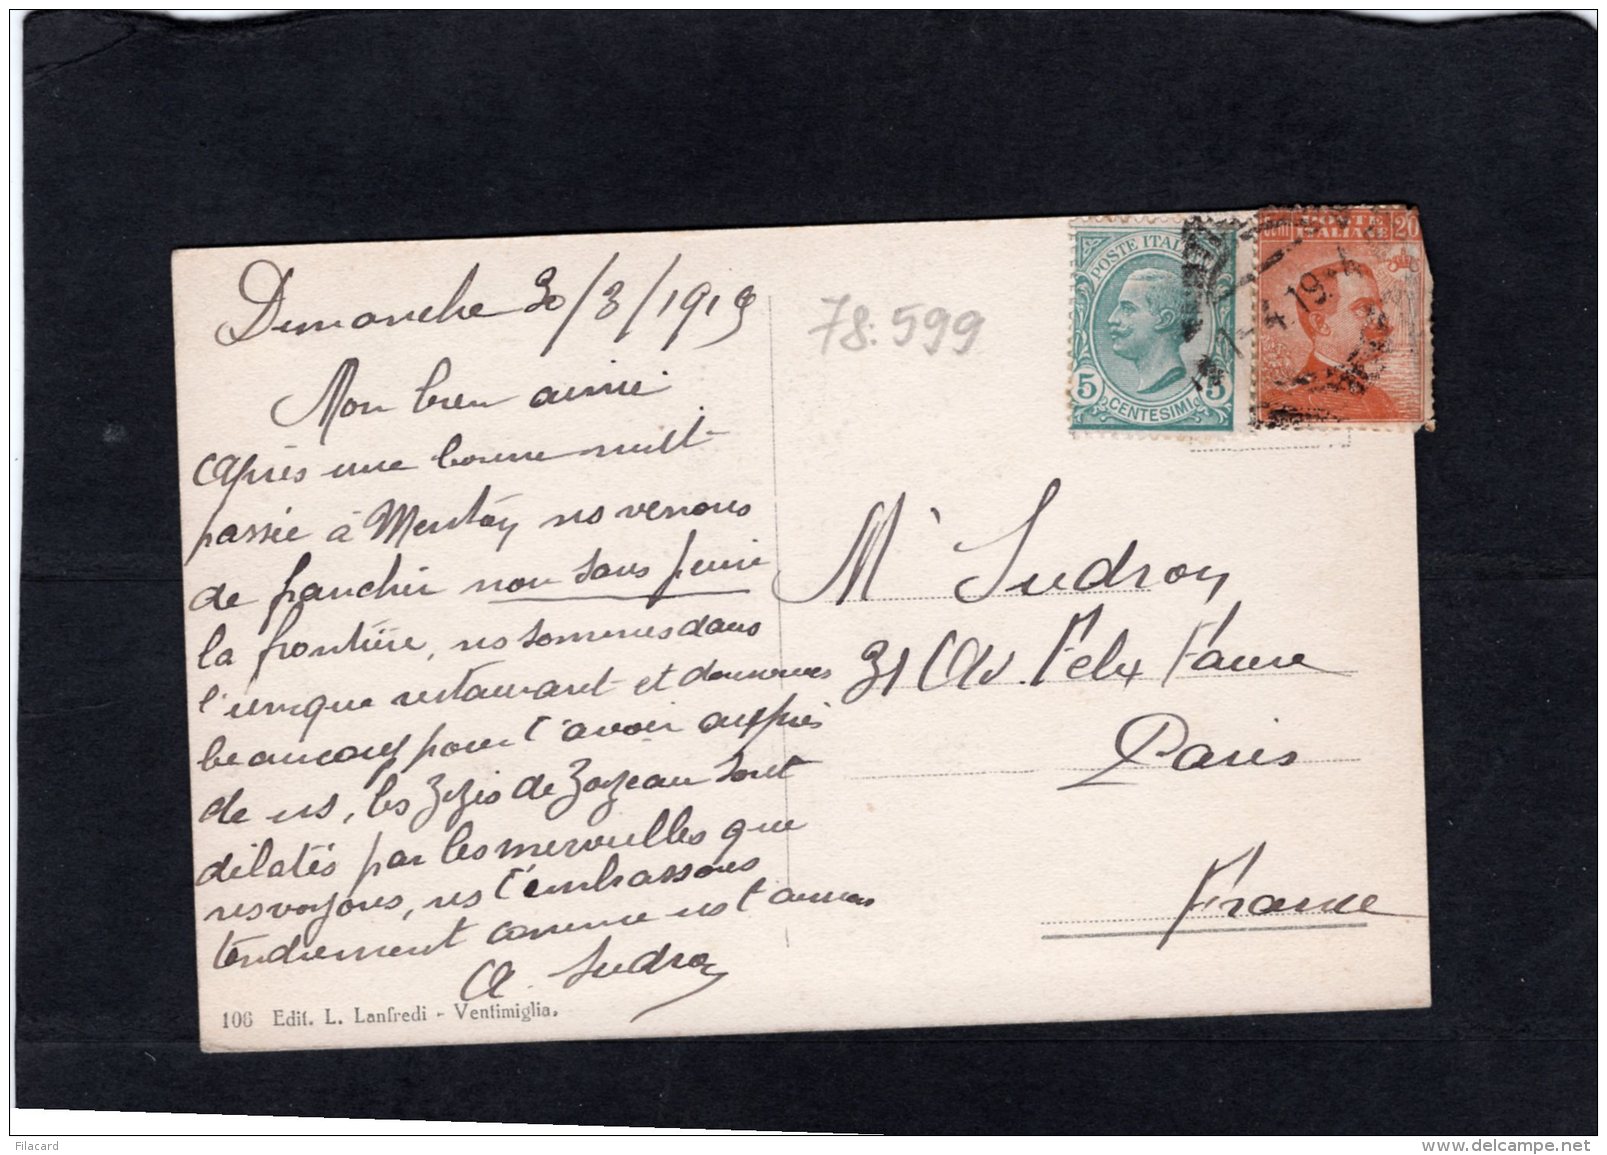 Dimanche 30/3/1919
Mon bien aimé
Après une bonne nuit
passée à Menton ns venons
de franchir non sans peine
la frontière, ns sommes dans
l'unique restaurant et donnerions
beaucoup pour t'avoir auprès
de ns, les Zizis de Zozeau sont
dilatés par les merveilles que
ns voyons, ns t'embrassons
tendrement comme ns t'aimons
A. Sudron
106 Edit. L. Lanfredi - Ventimiglia.
78.599
POSTE ITALIANE
5 5
CENTESIMI
Cent POSTE ITALIANE 20
4.19
Mr Sudron
31 Av. Felix Faure
Paris
France
Filacard
www.delcampe.net